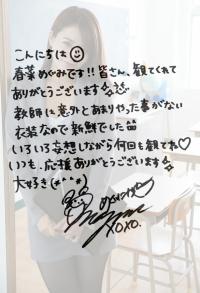 こんにちは
春菜めぐみです!!皆さん、観てくれて
ありがとうございます
教師は意外とあまりやった事がない
衣装なので新鮮でした
いろいろ妄想しながら何回も観てね♡
いつも、応援ありがとうございます
大好き(*^^*)
XOXO.